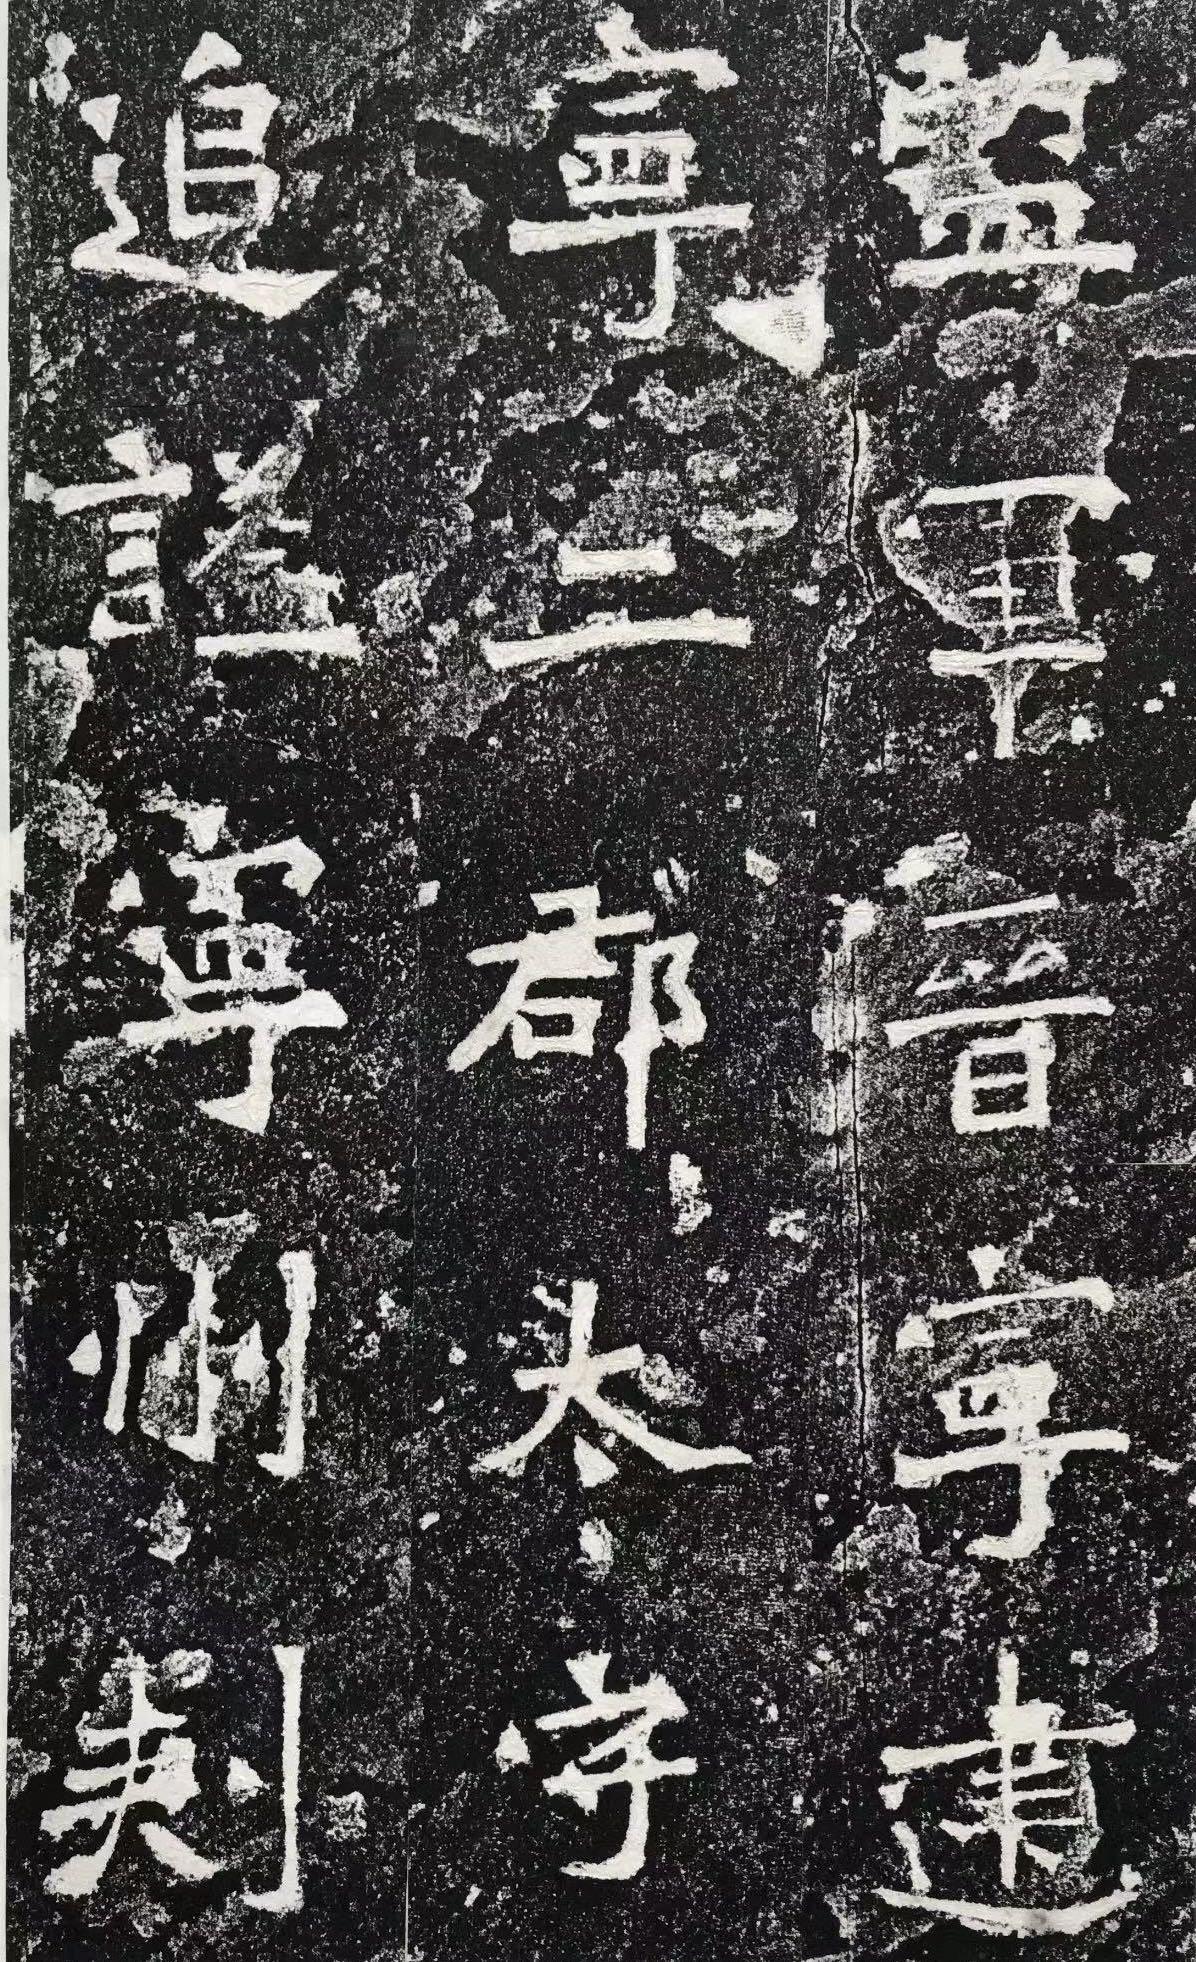 監軍晉寧建
寧二郡太守
追謚寧州刺